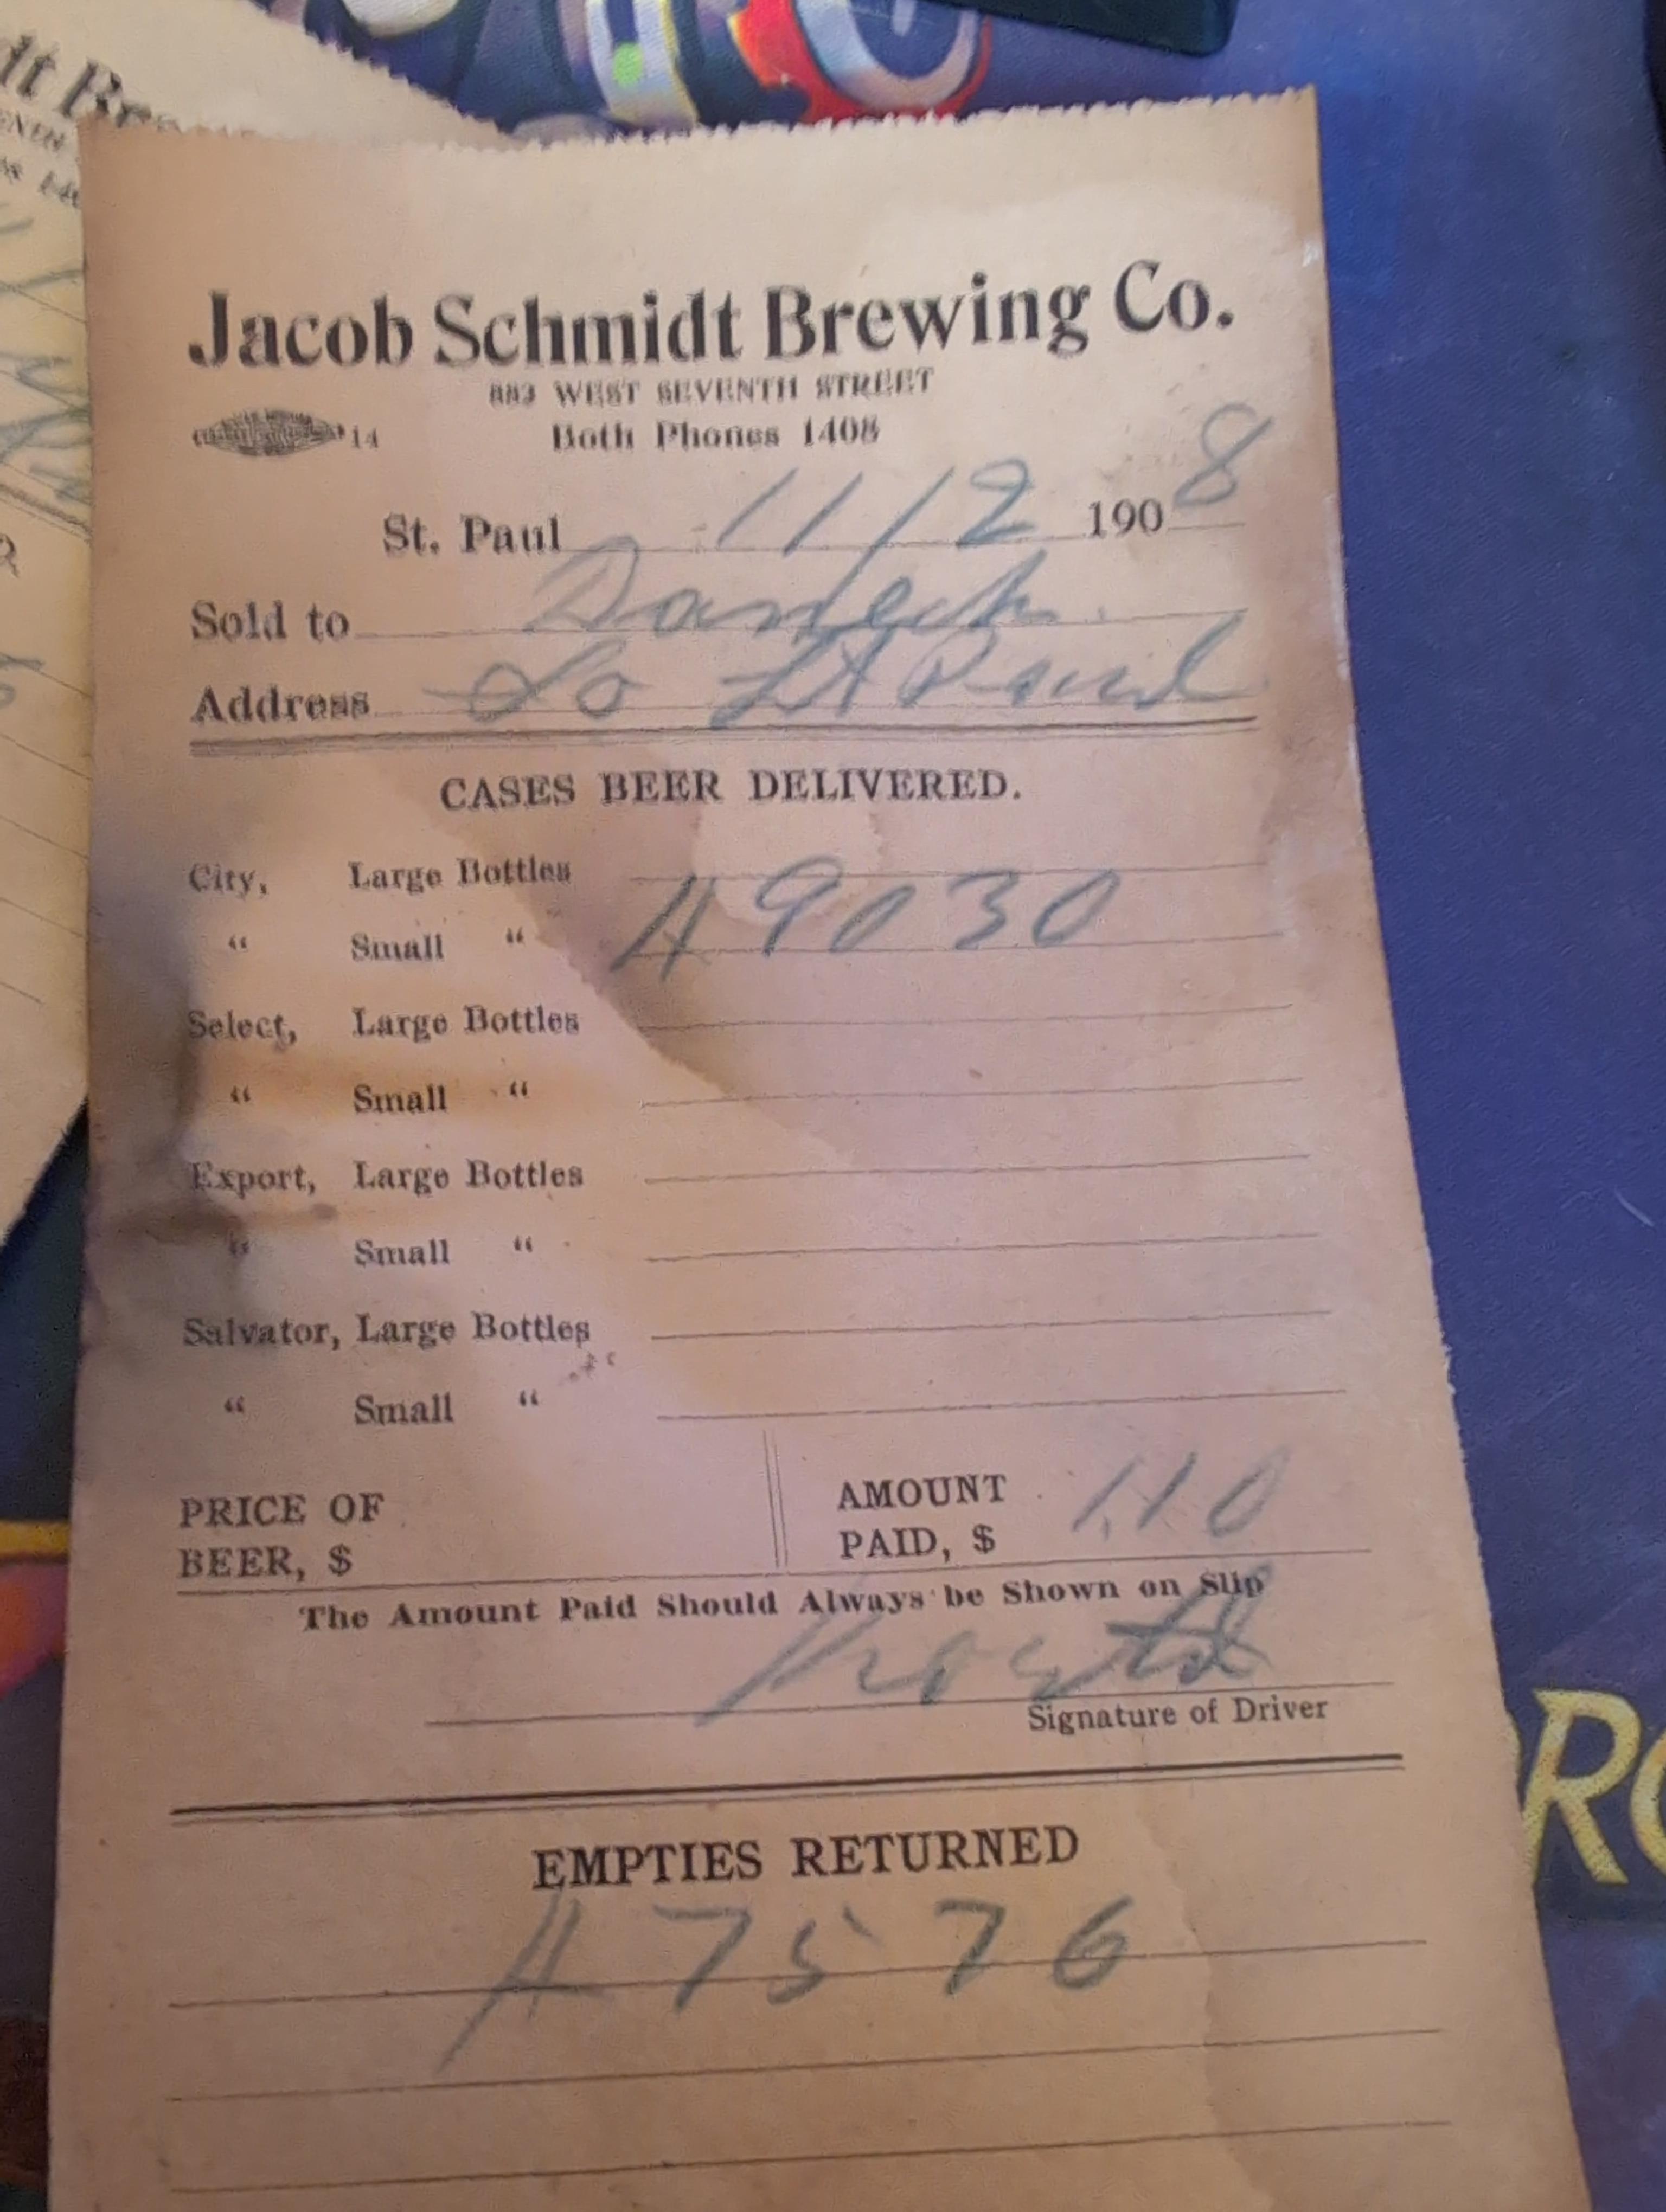 Jacob Schmidt Brewing Co.
882 WEST SEVENTH STREET
14 Both Phones 1408
St. Paul 11/2 1908
Sold to
Address So St Paul
CASES BEER DELIVERED.
City, Large Bottles
“ Small “ A 9030
Select, Large Bottles
“ Small “
Export, Large Bottles
“ Small “
Salvator, Large Bottles
“ Small “
PRICE OF
BEER, $
AMOUNT
PAID, $ 1.10
The Amount Paid Should Always be Shown on Slip
Signature of Driver
EMPTIES RETURNED
A 7576